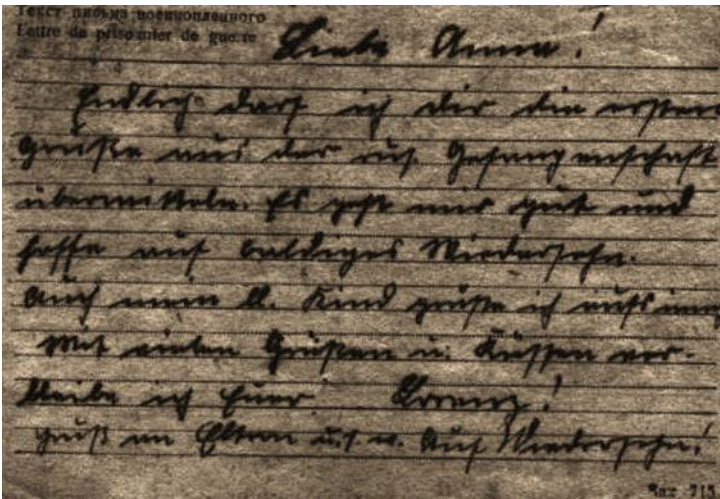 Текст письма военнопленного
Lettre du prisonnier de guerre
Liebe Anna!
Endlich darf ich dir die ersten
Grüße aus der rus. Gefangenschaft
übermitteln. Es geht mir gut und
hoffe auf baldiges Wiedersehn.
Auch mein kl. Kind grüße ich aufs
Mit vielen Grüßen u. Küssen ver-
bleibe ich Euer Lorenz!
Gruß an Eltern u.s.w. Auf Wiedersehn!
Зак. 715